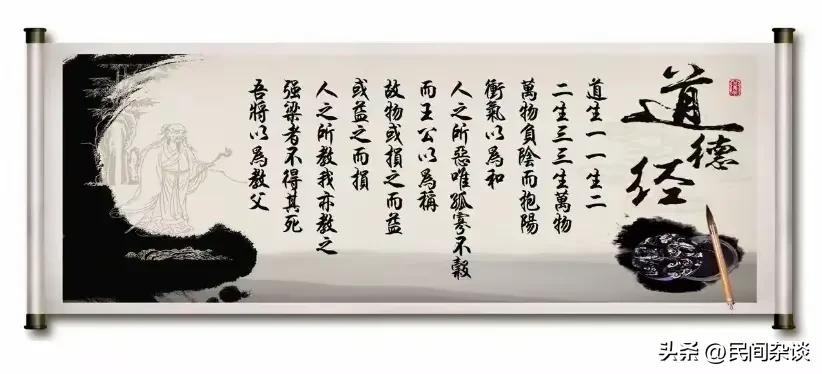 道德经
道生一一生二
二生三三生萬物
萬物負陰而抱陽
衝氣以為和
人之所惡唯孤寡不穀
而王公以為稱
故物或損之而益
或益之而損
人之所教我亦教之
强梁者不得其死
吾將以為教父
头条 @民间杂谈